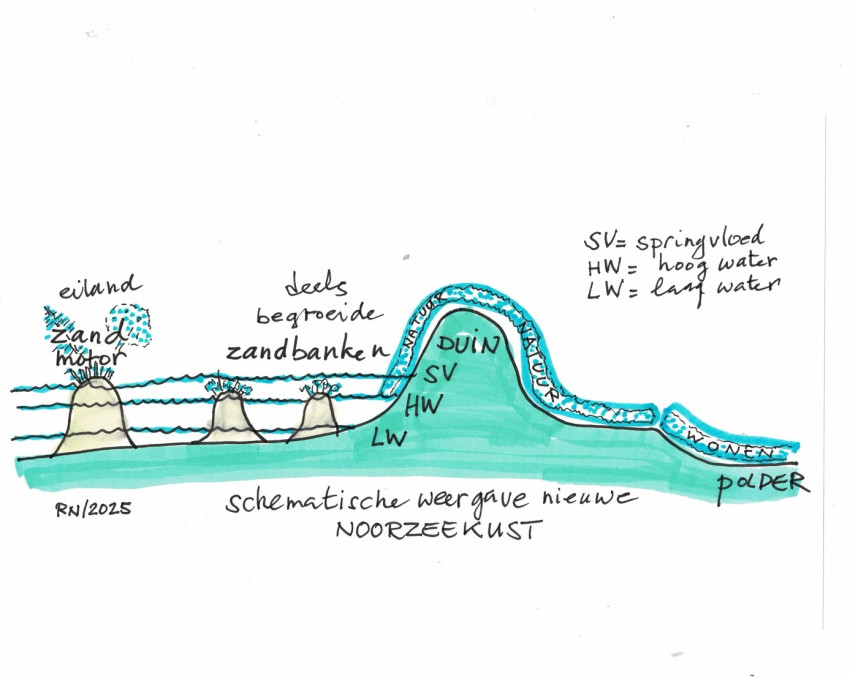 SV= springvloed
HW= hoog water
LW= laag water
eiland
zand
motor
deels
begroeide
zandbanken
NATUUR
NATUUR
DUIN
SV
HW
LW
WONEN
POLDER
RN/2025
schematische weergave nieuwe
NOORZEEKUST